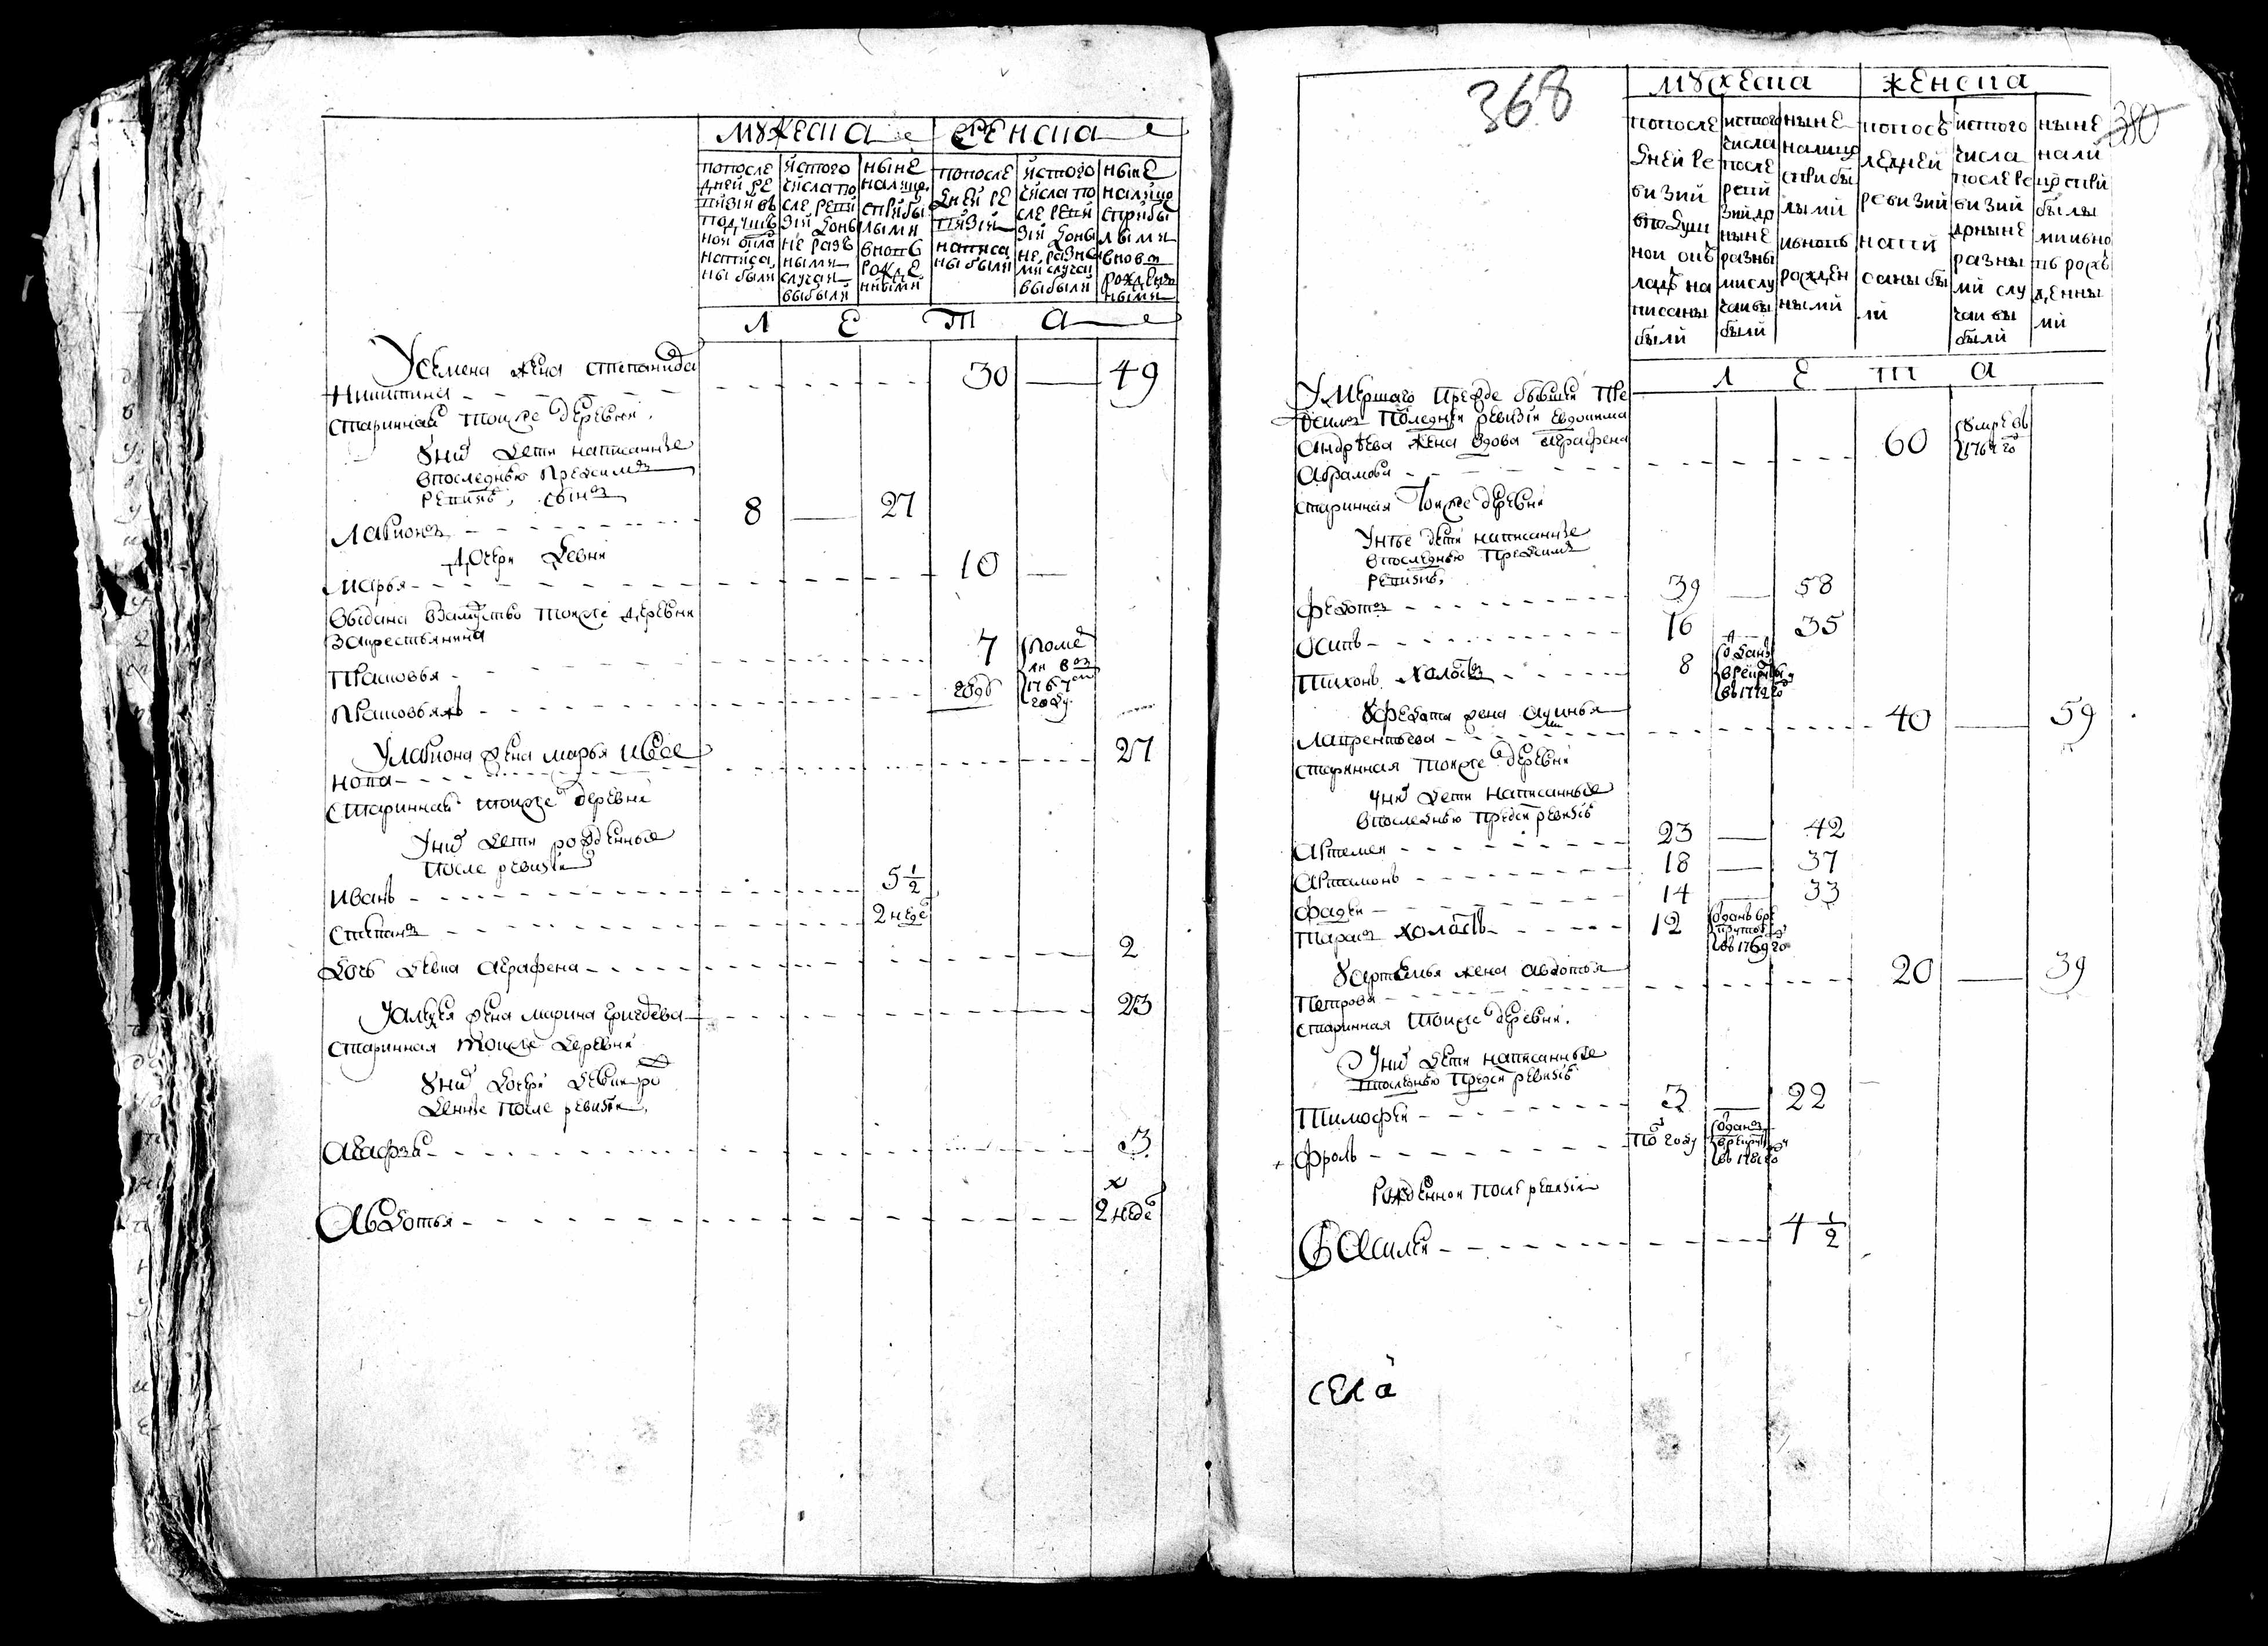 мужеска женска
попосле
дней ре
визии въ
подушъ
ной окла
написа
ны были
истого
числа по
сле реви
зии доны
не разъ
ными
случаи
выбыли
ныне
налицо
сприбы
лыми
вновь
рожде
нными
попосле
дней ре
визии
написа
ны были
истого
числа по
сле реви
зии доны
не разны
ми случаи
выбыли
ныне
налицо
сприбы
лыми
вновь
рожденно
ными
Л Е Т А
Усемена жена степанида
Никитина 30 49
старинная тоиже деревни
Унихъ дети написанные
впоследнюю предсимъ
ревизию, сынъ
Ларионъ 8 27
Дочери девки
Марья 10
выдана взамужство тоиже деревни
закрестьянина
Прасковья 7 поме
ли въ
1767 м
году
Прасковьяжъ
Улариона жена марья ива
нова 27
старинная тоиже деревни
Унихъ дети рожденные
после ревизии
Иванъ 5 1/2
Степанъ 2 неде
Дочь девка аграфена 2
жена марина 23
старинная тоиже деревни
Унихъ дочери девки ро
денные после ревизии
3
Авдотья 2 неде
368
380
мужеска женска
попосле
дней ре
визии
вподуш
ной окъ
ладъ на
писаны
были
истого
числа
после
реви
зии до
ныне
разны
ми слу
чаи вы
были
ныне
налицо
сприбы
лыми
ивновь
рожден
ными
попосъ
ледней
ревизии
напи
саны бы
ли
истого
числа
после ре
визии
доныне
разны
ми слу
чаи вы
были
ныне
нали
цо спри
былы
ми ивно
вь рожъ
денны
ми
Л Е Т А
Умершаго прежде бывшей пре
дсимъ последней ревизии евдокима
андреева жена вдова аграфена
Абрамова 60 умре въ
1764 го
старинная тоиже деревни
Унее дети написанные
впоследнюю предсимъ
ревизию,
Федотъ 39 58
Осипъ 16 35
Тихонъ холостъ 8 отданъ
врекруты
въ 1772 го
Уфедота жена акулина
Лаврентьева 40 59
старинная тоиже деревни
Унихъ дети написанные
впоследнюю предси ревизию
Артемеи 23 42
Артамонъ 18 37
Фадеи 14 33
Тарасъ холостъ 12 отданъ вре
круты
въ 1769 го
Уартемья жена авдотья
Петрова 20 39
старинная тоиже деревни.
Унихъ дети написанные
впоследнюю предси ревизию
Тимофеи 3 22
Фролъ полъ году отданъ
врекруты
въ 1781 го
Рожденнои после ревизии
Василеи 4 1/2
села